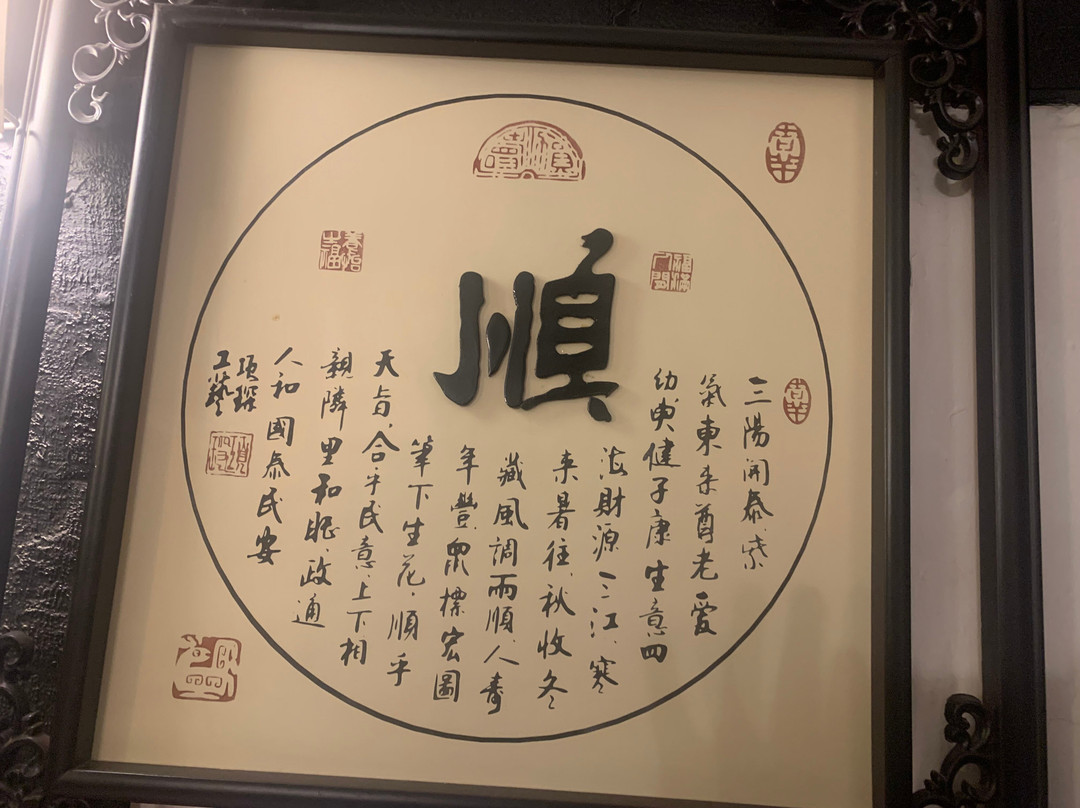 順
三陽開泰、紫
氣東来尊老愛
幼爽健子康生意四
海財源三江、寒
来暑往、秋收冬
藏風調雨順、人壽
年豐、鼠標宏圖
筆下生花、順乎
天旨、合乎民意、上下相
親隣里和睦、政通
人和國泰民安
項琛
工藝
福滿
人間